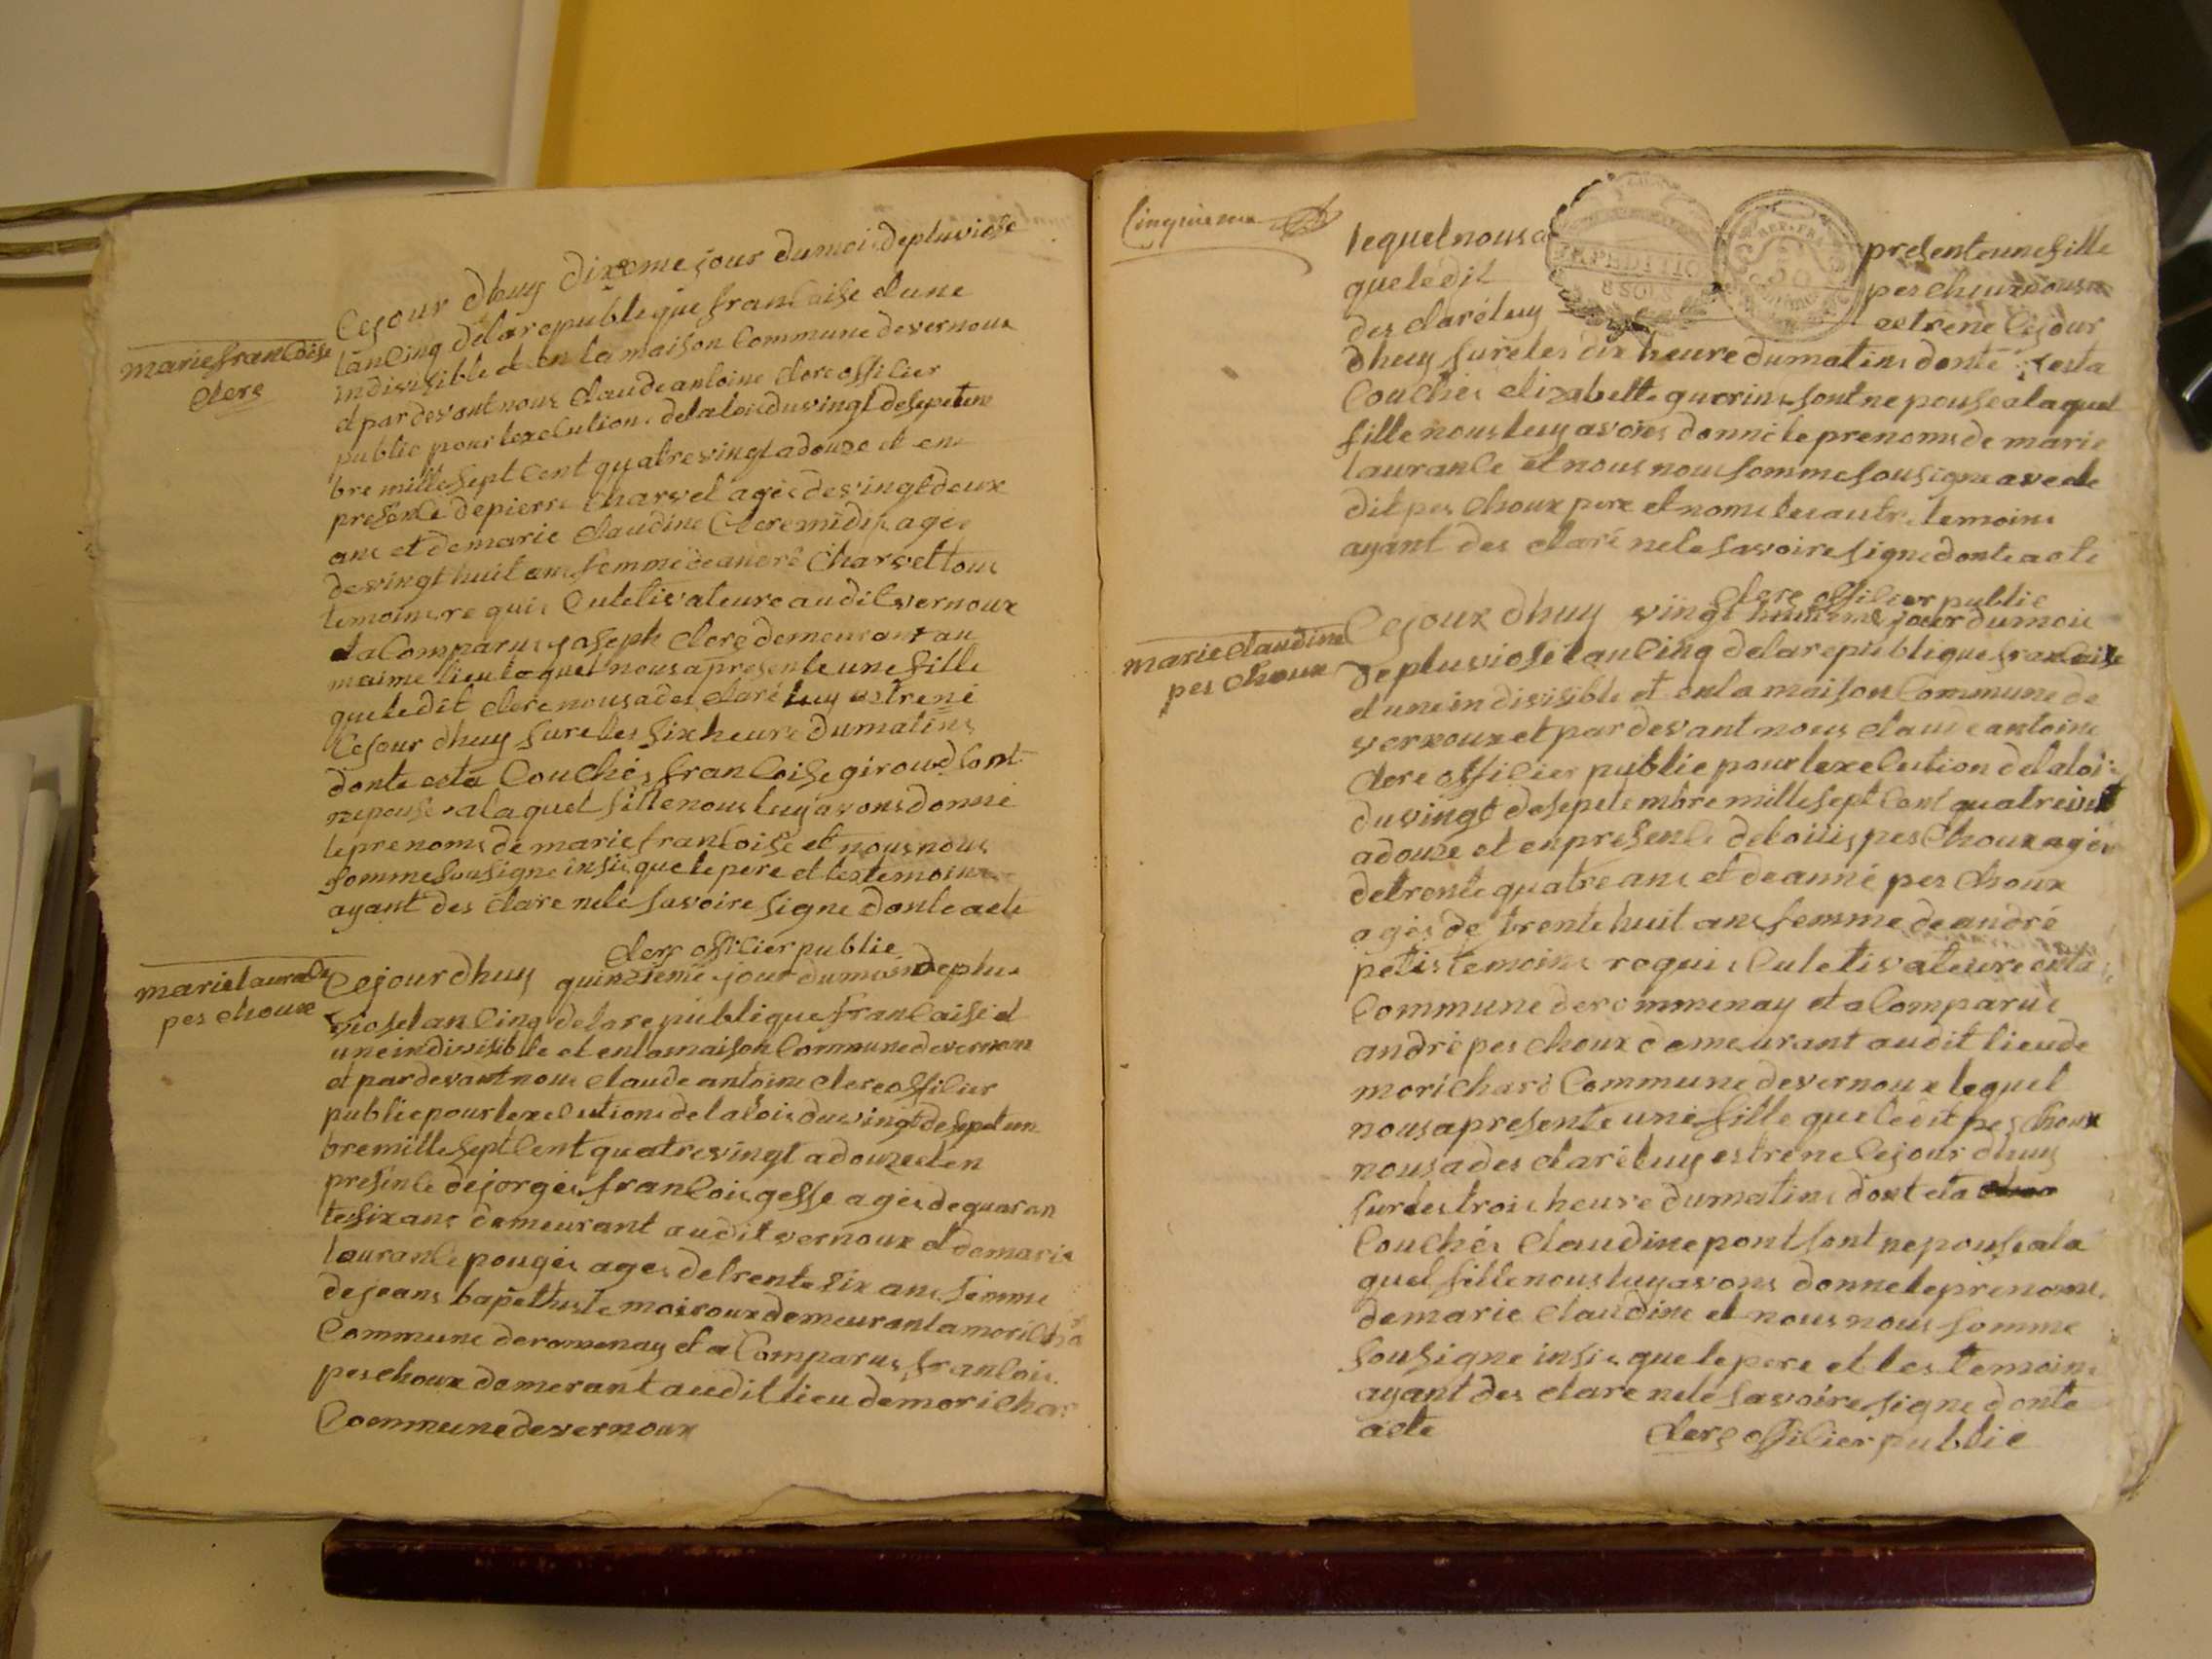 Cejour dhuy dixeme jour du mois de pluviose
lan cinq de la republique francaise et une
indivisible et en la maison commune de vernoux
et par devant nous claude antoine clere officier
public pour lexecutions de la lois du vingt de septem
bre mille sept cent quatre vingt a douze et en
presence de pierre charvet ages de vingt deux
ans et de marie claudine clere midis ages
de vingt huit ans femme de andré charvet tous
temoins requis cutetivateure audit vernoux
et a comparus joseph clere demeurant au
maime lieu lequel nous a presente une fille
que le dit clere nous a des claré luy estrené
cejour dhuy sure les six heure du matins
donte esta couchés francoise giroud sont
nepouse a la quel fille nous luy avons donné
le prenoms de marie francoise et nous nous
somme sousigne insis que le pere et les temoins
ayant des clare nele savoire signe donte acte
clere officier public
marie francoise
clere
Cejour dhuy quinzieme jour du mois de plu
viose lan cinq de la republique francaise et
une indivisible et en la maison commune de vernoux
et par devant nous claude antoine clere officier
public pour lexecutions de la lois du vingt de septem
bre mille sept cent quatre vingt a douze et en
presence de jorges francois gesse ages de quaran
te six ans demeurant audit vernoux et de marie
laurance pouges ages de trente six ans femme
de jeans bapethiste moiroux demeurant a moricha
commune de romenay et a comparus francois
peschoux demerant audit lieu de morichar
commune de vernoux
marie laurance
pes choux
Cinquieme
lequel nous a presente une fille
que le dit pes choux nous a
des claré luy estrene cejour
dhuy sure les dix heure du matins donte esta
couchés elizabette guerrins sont nepouse a la quel
fille nous luy avons donné le prenoms de marie
laurance et nous nous somme sousigne avec le
dit pes choux pere et noms les autre temoins
ayant des claré nele savoire signe donte acte
clere officier public
marie claudine
pes choux
Cejour dhuy vingt huitieme jour du mois
de pluviose lan cinq de la republique francaise
et une indivisible et en la maison commune de
vernoux et par devant nous claude antoine
clere officier public pour lexecution de la loi
du vingt de septembre mille sept cent quatre vingt
a douze et en presence de loiiis pes choux ages
de trente quatre ans et de anne pes choux
ages de trente huit ans femme de andré
petis temoins requis cutetivateure en la
commune de rommenay et a comparus
andré pes choux demeurant audit lieu de
morichard commune de vernoux lequel
nous a presente une fille que le dit pes choux
nous a des claré luy estrene cejour dhuy
sur les trois heure du matins dont esta
couchés claudine pont sont nepouse a la
quel fille nous luy avons donne le prenoms
de marie claudine et nous nous somme
sousigne insis que le pere et les temoins
ayant des clare nele savoire signe donte
acte clere officier public